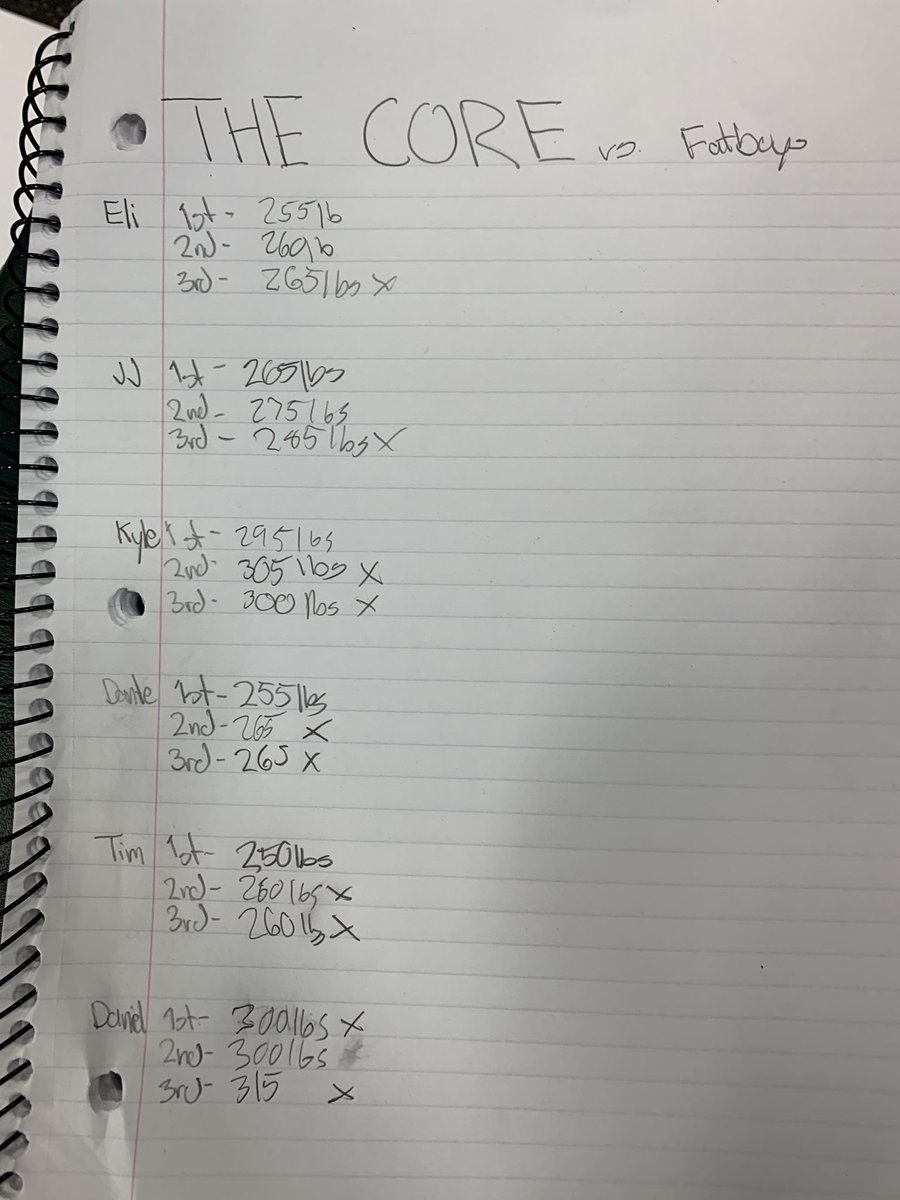 THE CORE vs. Fatboys
Eli 1st - 255lb
2nd - 260lb
3rd - 265lbs X
JJ 1st - 265lbs
2nd - 275lbs
3rd - 285lbs X
Kyle 1st - 295lbs
2nd - 305lbs X
3rd - 300lbs X
Dante 1st - 255lbs
2nd - 265 X
3rd - 265 X
Tim 1st - 250lbs
2nd - 260lbs X
3rd - 260lb X
Daniel 1st - 300lbs X
2nd - 300lbs
3rd - 315 X